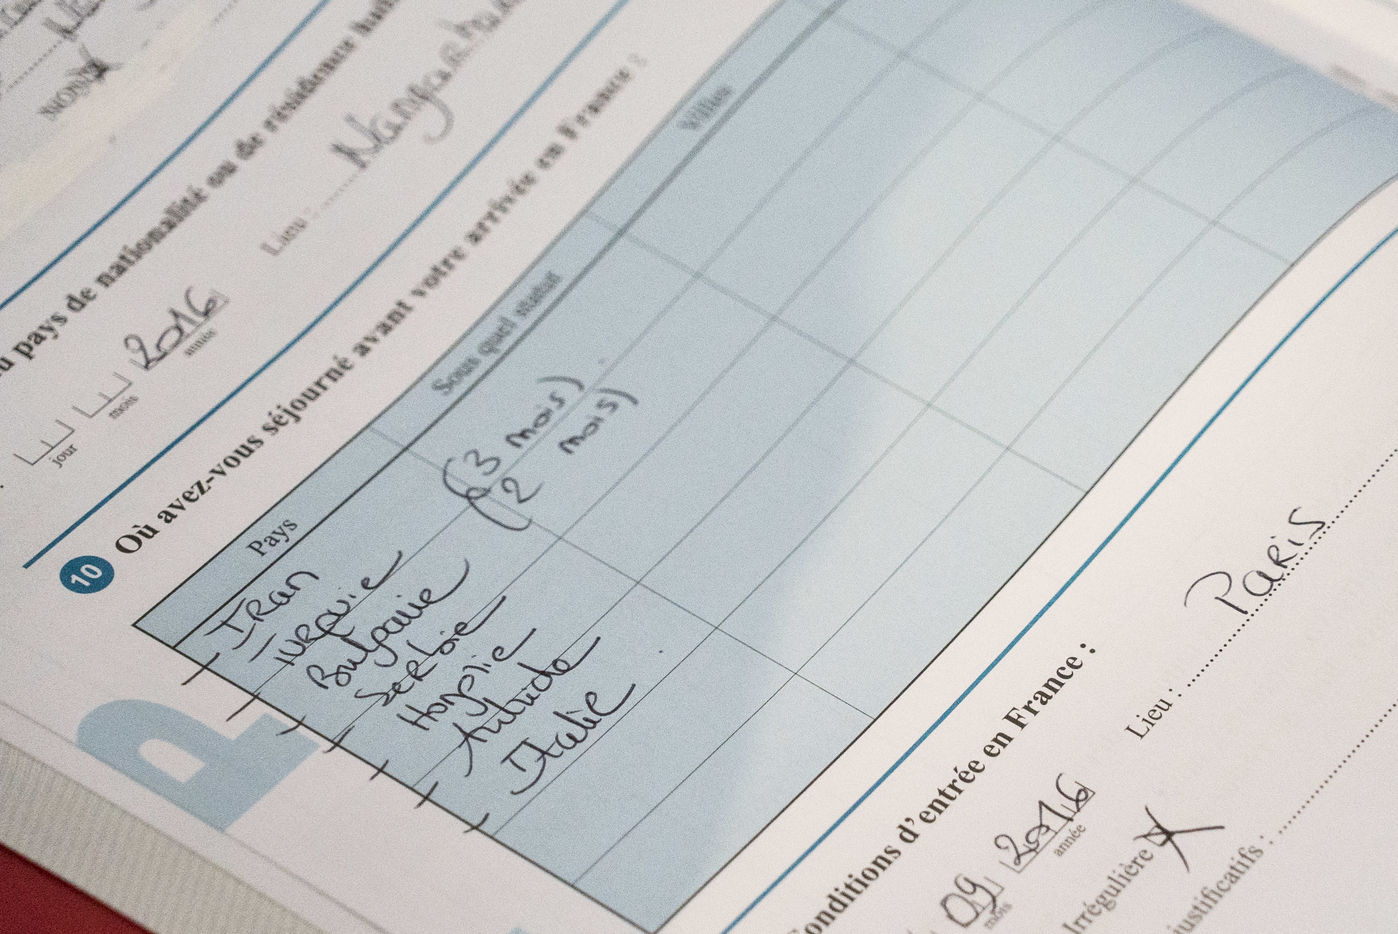 NON
u pays de nationalité ou de résidence
2016
jour mois année
Lieu :
10 Où avez-vous séjourné avant votre arrivée en France :
Pays Sous quel statut Villes
- IRan
- TURQuie (3 mois)
- Bulgarie (2 mois)
- SeRbie
- Hongrie
- Autriche
- Italie
onditions d'entrée en France :
09 2016 Lieu : PaRiS
mois année
Irrégulière
justificatifs :